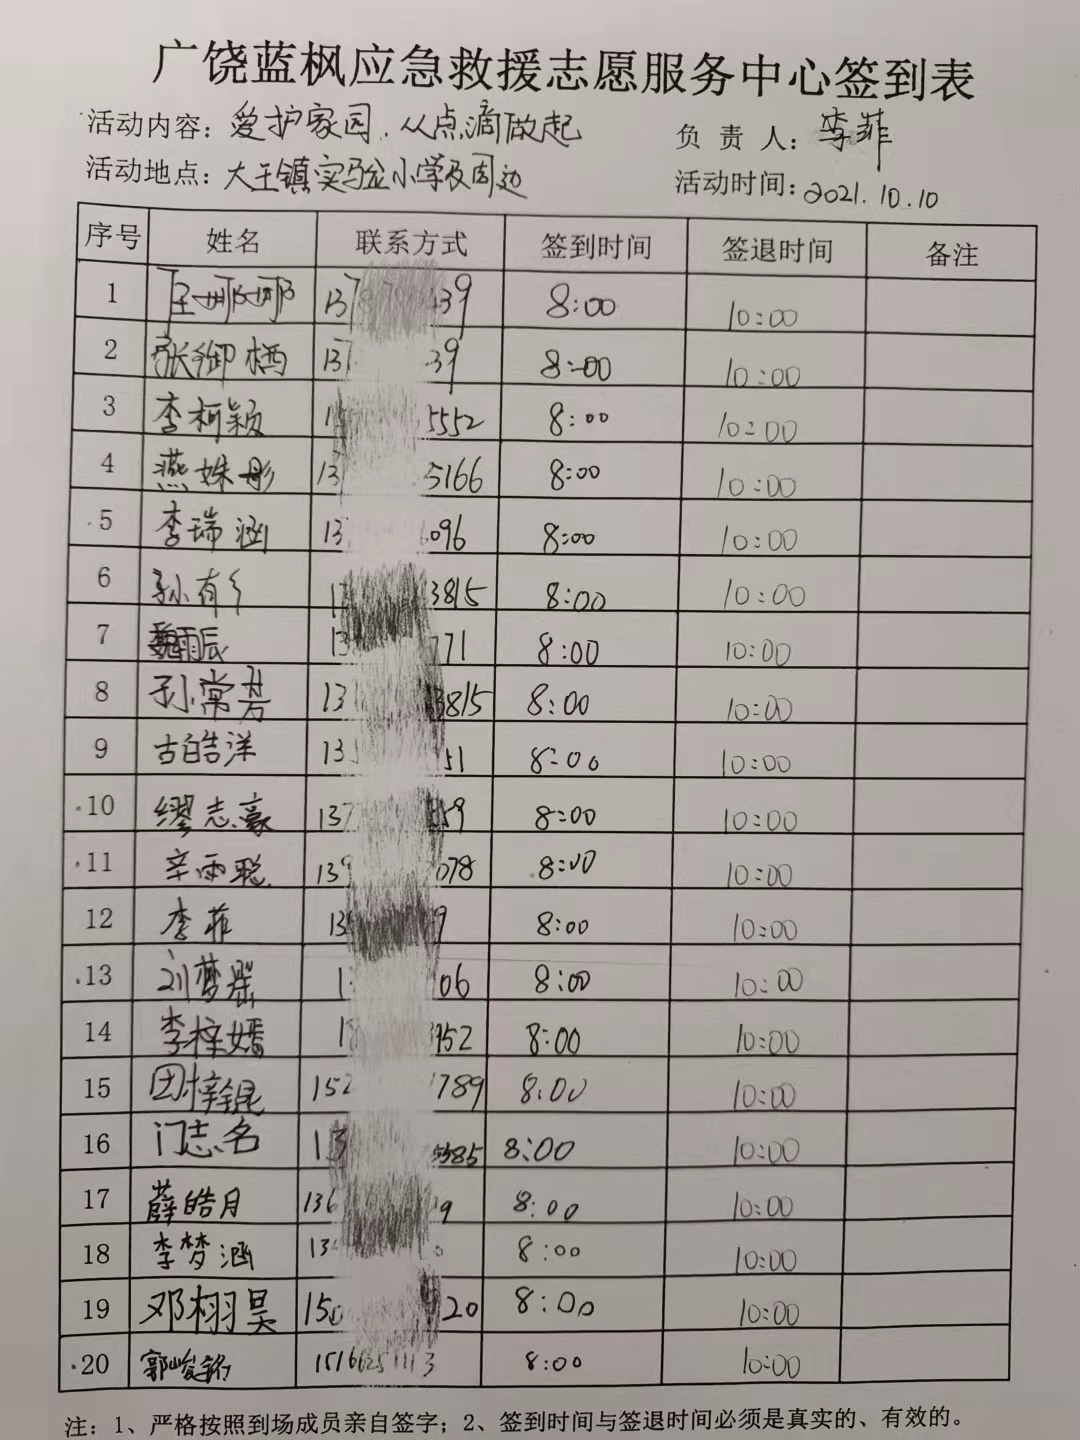 广饶蓝枫应急救援志愿服务中心签到表
活动内容：爱护家园．从点滴做起 负责人：李菲
活动地点：大王镇实验小学及周边 活动时间：2021.10.10
序号 姓名 联系方式 签到时间 签退时间 备注
1 王娜娜 137 39 8:00 10:00
2 张御栖 137 39 8:00 10:00
3 李柯颖 5552 8:00 10:00
4 燕姝彤 13 5166 8:00 10:00
5 李瑞涵 13 096 8:00 10:00
6 孙有 3815 8:00 10:00
7 魏雨辰 13 71 8:00 10:00
8 孙常芳 13 3815 8:00 10:00
9 古皓洋 13 51 8:00 10:00
10 缪志豪 137 59 8:00 10:00
11 辛雨聪 139 078 8:00 10:00
12 李菲 13 9 8:00 10:00
13 刘梦 06 8:00 10:00
14 李梓嫣 18 952 8:00 10:00
15 团梓锟 152 789 8:00 10:00
16 门志名 13 5385 8:00 10:00
17 薛皓月 136 9 8:00 10:00
18 李梦涵 13 0 8:00 10:00
19 邓栩昊 150 20 8:00 10:00
20 郭峻铭 8:00 10:00
注：1、严格按照到场成员亲自签字；2、签到时间与签退时间必须是真实的、有效的。